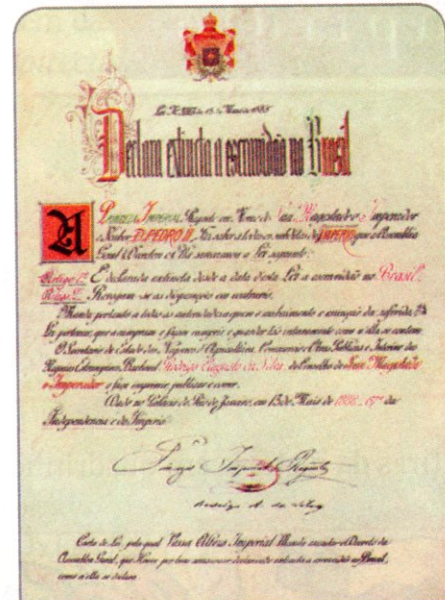 Lei Nº 3353 de 13 de Maio de 1888
Declara extincta a escravidão no Brasil
A Princeza Imperial Regente em Nome de Sua Magestade o Imperador
o Senhor D. PEDRO II, Faz saber a todos os subditos do IMPERIO que a Assembléa
Geral Decretou e Ella sanccionou a Lei seguinte:
Artigo 1º E' declarada extincta desde a data desta Lei a escravidão no Brasil.
Artigo 2º Revogam-se as disposições em contrario.
Manda portanto a todas as autoridades a quem o conhecimento e execução da referida
Lei pertencer, que a cumpram e façam cumprir e guardar tão inteiramente como n'ella se contem
O Secretario de Estado dos Negocios d'Agricultura, Commercio e Obras Publicas e Interino dos
Negocios Estrangeiros, Bacharel Rodrigo Augusto da Silva, do Conselho de Sua Magestade
o Imperador o faça imprimir publicar e correr.
Dado no Palacio do Rio de Janeiro, em 13 de Maio de 1888 - 67º da
Independencia e do Imperio
Princeza Imperial Regente
Rodrigo A. da Silva
Carta de Lei, pela qual Vossa Alteza Imperial Manda executar o Decreto da
Assembléa Geral, que Houve por bem sanccionar declarando extincta a escravidão no Brasil,
como n'ella se declara